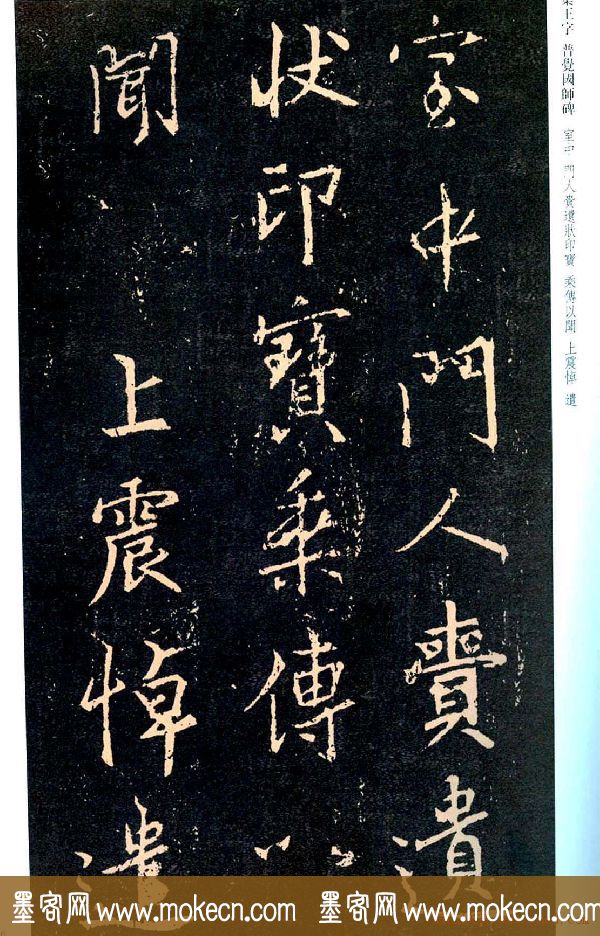 集王字 普覺國師碑 室中 門人賫遺狀印寶 乘傳以聞 上震悼 遣
室中門人賫遺
状印寶乘傳以
聞 上震悼遣
墨客网 www.mokecn.com 墨客网 www.mokecn.com